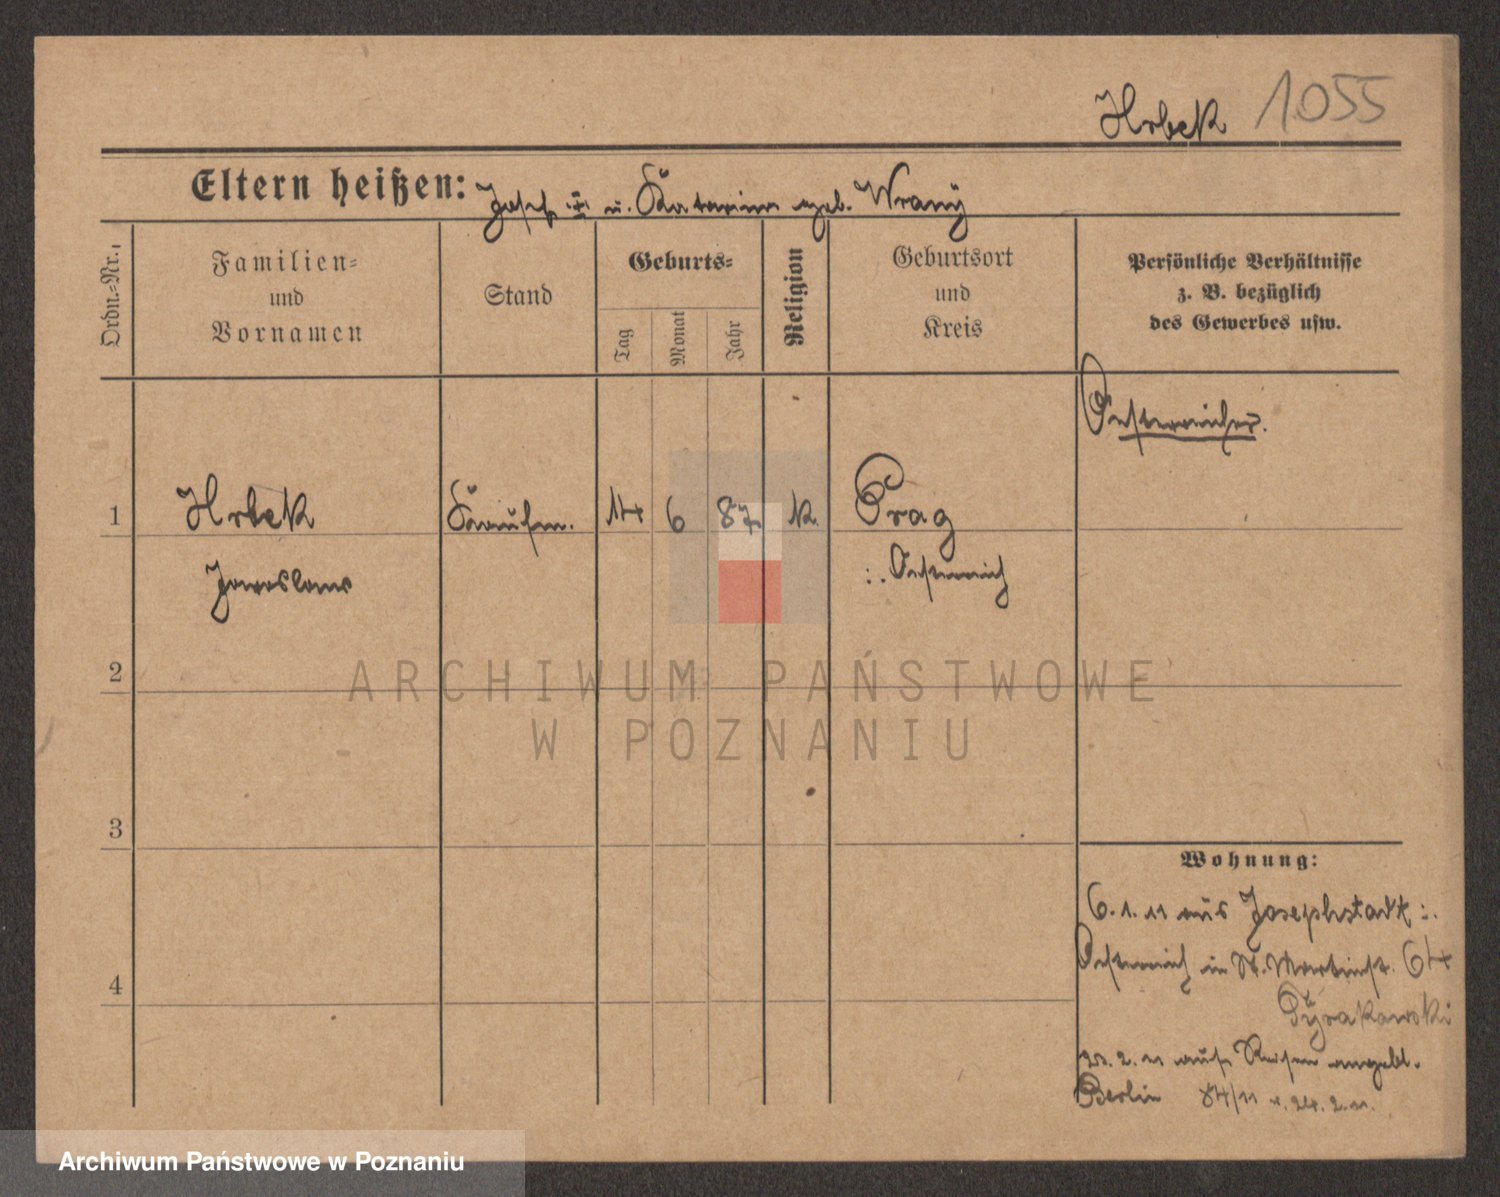 Hrbek 1055
Eltern heißen: Josef u. Katarina geb. Wrany
Ordn.-Nr.
Familien-
und
Vornamen
Stand
Geburts-
Tag
Monat
Jahr
Religion
Geburtsort
und
Kreis
Persönliche Verhältnisse
z. B. bezüglich
des Gewerbes usw.
Oesterreicher.
1 Hrbek Kaufm. 14 6 87 k. Prag
Jaroslaus i. Österreich
2
ARCHIWUM PAŃSTWOWE
W POZNANIU
3
Wohnung:
6.1.11 aus Josephstadt i.
4
Österreich in St. Martinst. 64
Pyrakowski
2.11 auf Reisen angebl.
Berlin 84/11 v. 24.2.11.
Archiwum Państwowe w Poznaniu